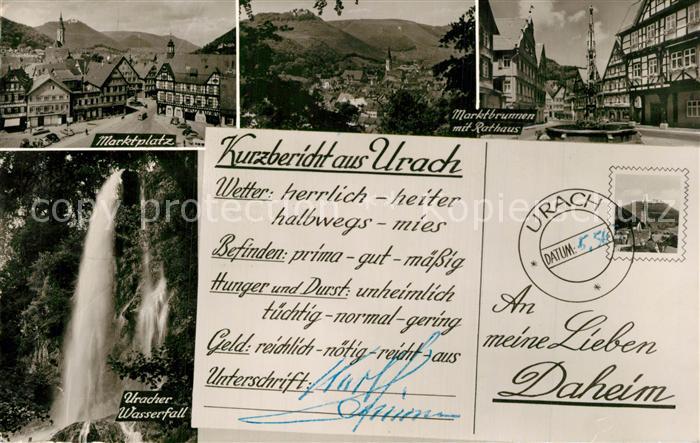 Marktplatz
Marktbrunnen
mit Rathaus
Uracher
Wasserfall
Kurzbericht aus Urach
Wetter: herrlich - heiter
halbwegs - mies
Befinden: prima - gut - mäßig
Hunger und Durst: unheimlich
tüchtig - normal - gering
Geld: reichlich - nötig - reicht aus
Unterschrift:
URACH
DATUM:
An
meine Lieben
Daheim
copy protection Kopierschutz